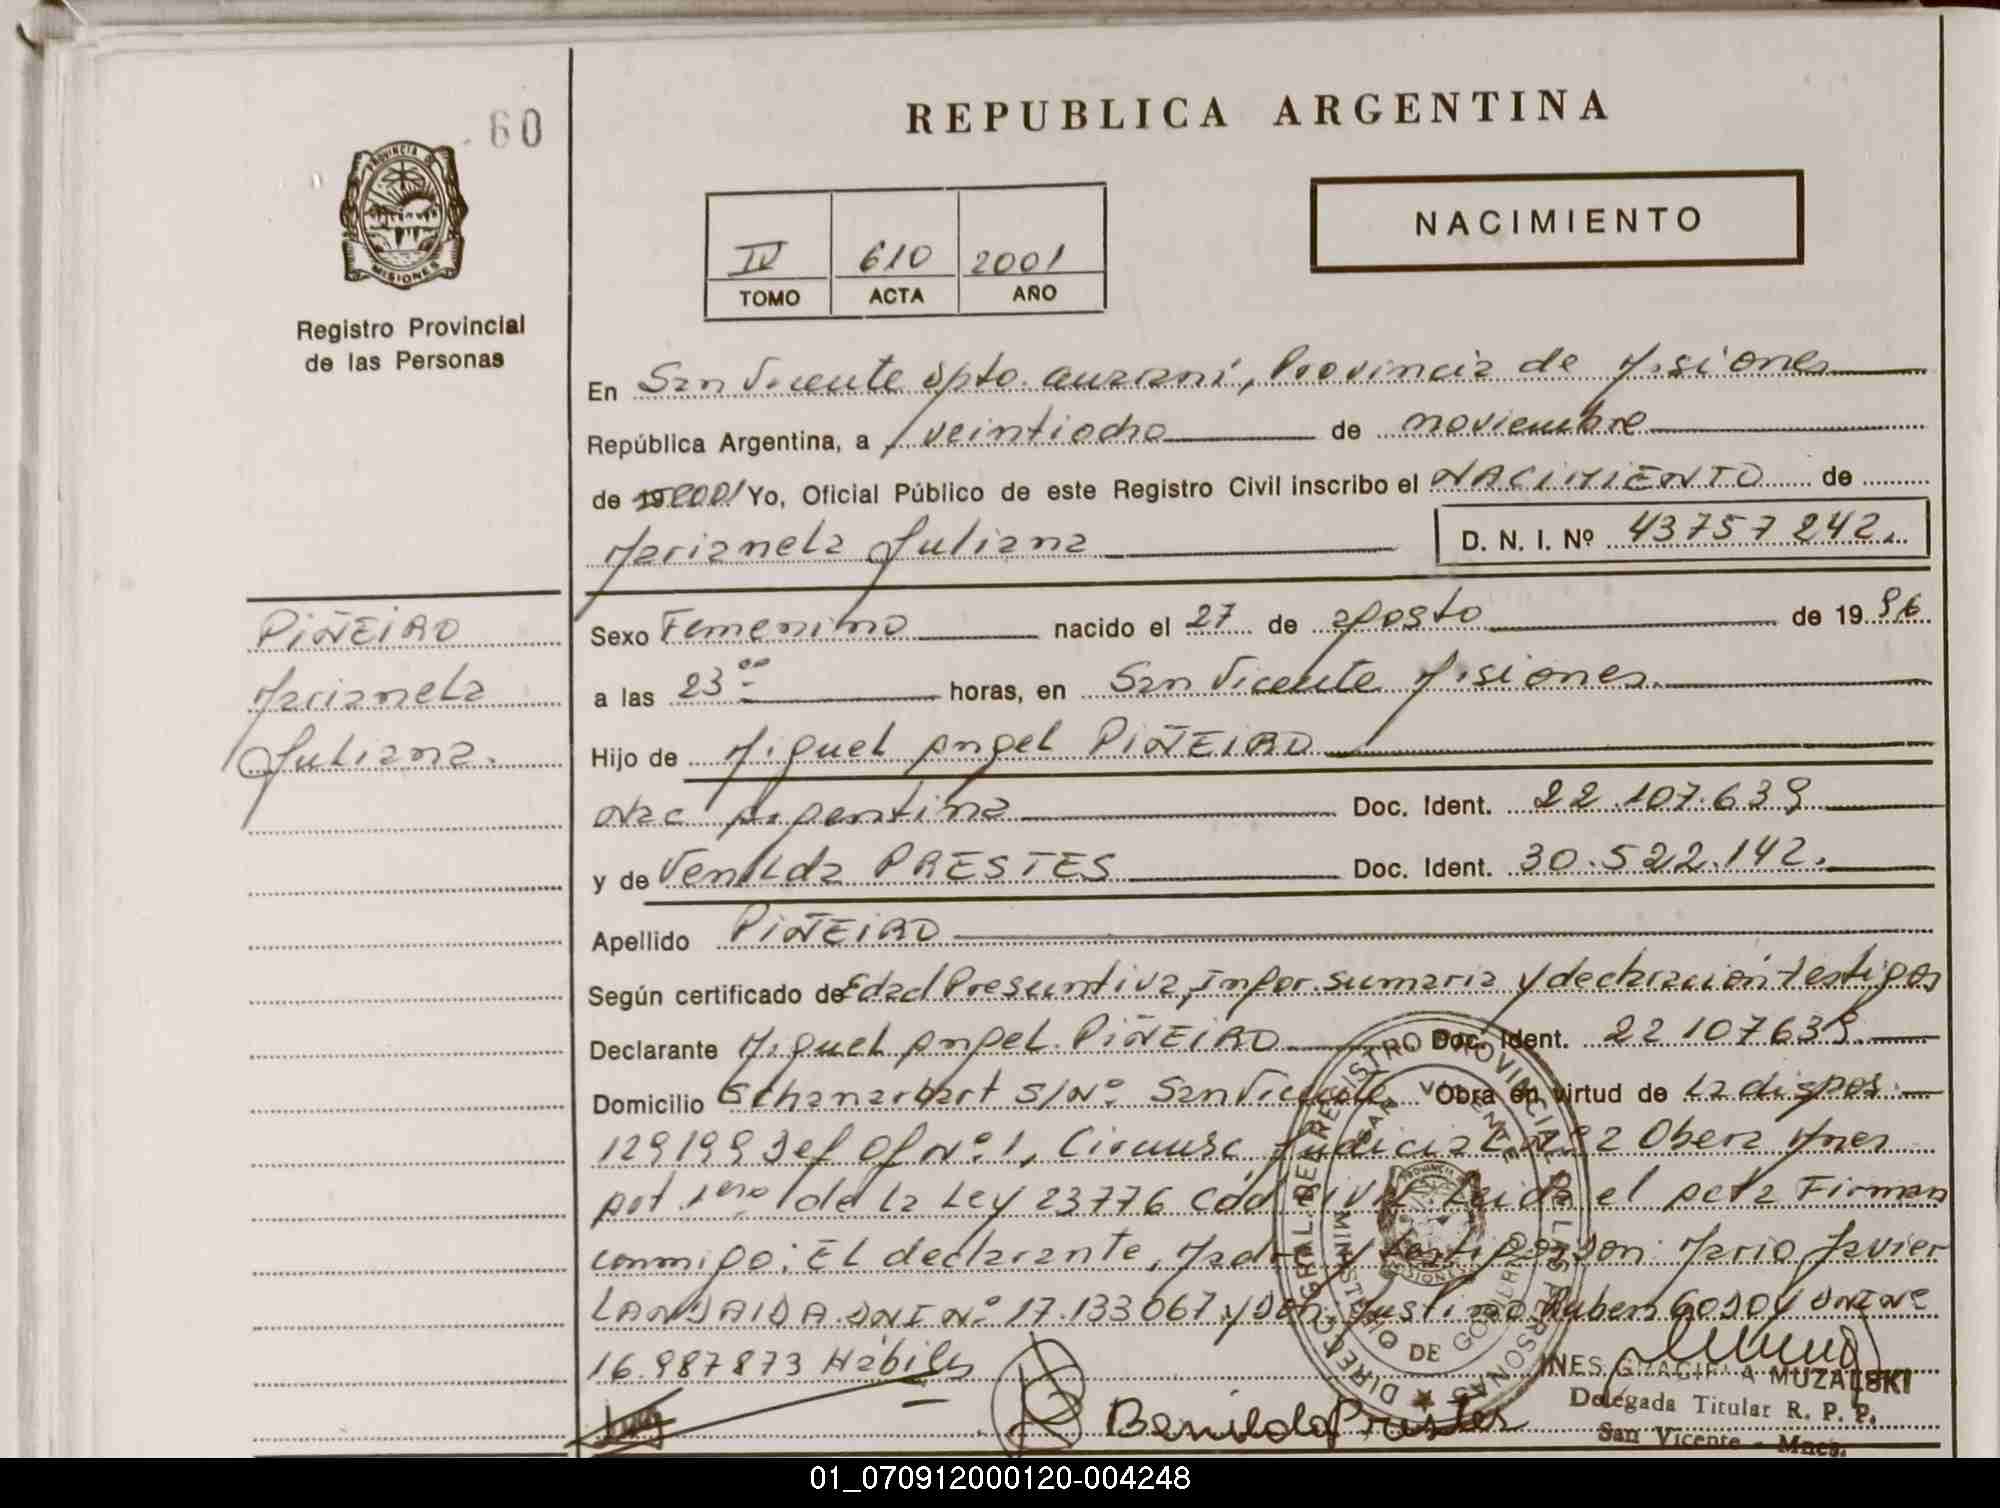 60
REPUBLICA ARGENTINA
PROVINCIA DE
MISIONES
Registro Provincial
de las Personas
IV 610 2001
TOMO ACTA AÑO
NACIMIENTO
En San Vicente Dpto. Guarani, Provincia de Misiones
República Argentina, a veintiocho de noviembre
de 19 2001 Yo, Oficial Público de este Registro Civil inscribo el NACIMIENTO de
Marianela Juliana D. N. I. Nº 43757242.
PIÑEIRO
Marianela
Juliana.
Sexo Femenino nacido el 27 de agosto de 1996
a las 23 00 horas, en San Vicente Misiones.
Hijo de Miguel Angel PIÑEIRO
Nac Argentina Doc. Ident. 22.107.639
y de Venilda PRESTES Doc. Ident. 30.522.142.
Apellido PIÑEIRO
Según certificado de Edad Presuntiva, Infor. sumaria y declaración testigos
Declarante Miguel Angel PIÑEIRO Doc. Ident. 22107639
Domicilio S/Nº San Vicente Obra en virtud de la dispos.
Of Nº 1, Circunsc Judicial Nº 2 Obera Mnes
de la Ley 23776 Cód Civil Leida el acta Firman
conmigo: El declarante, Madre y testigos Don: Mario Javier
LANDAIDA DNI Nº 17.133067 y Don: Justino Ruben GODOY DNI Nº
16.987873 Hábiles
Benilda Prestes
DIRECC. GRAL. DE REGISTRO PROVINCIAL DE LAS PERSONAS
SAN VICENTE
MINIST. DE GOBIERNO
PROVINCIA DE
MISIONES
INES GRACIELA MUZALSKI
Delegada Titular R. P. P.
San Vicente - Mnes.
01_070912000120-004248